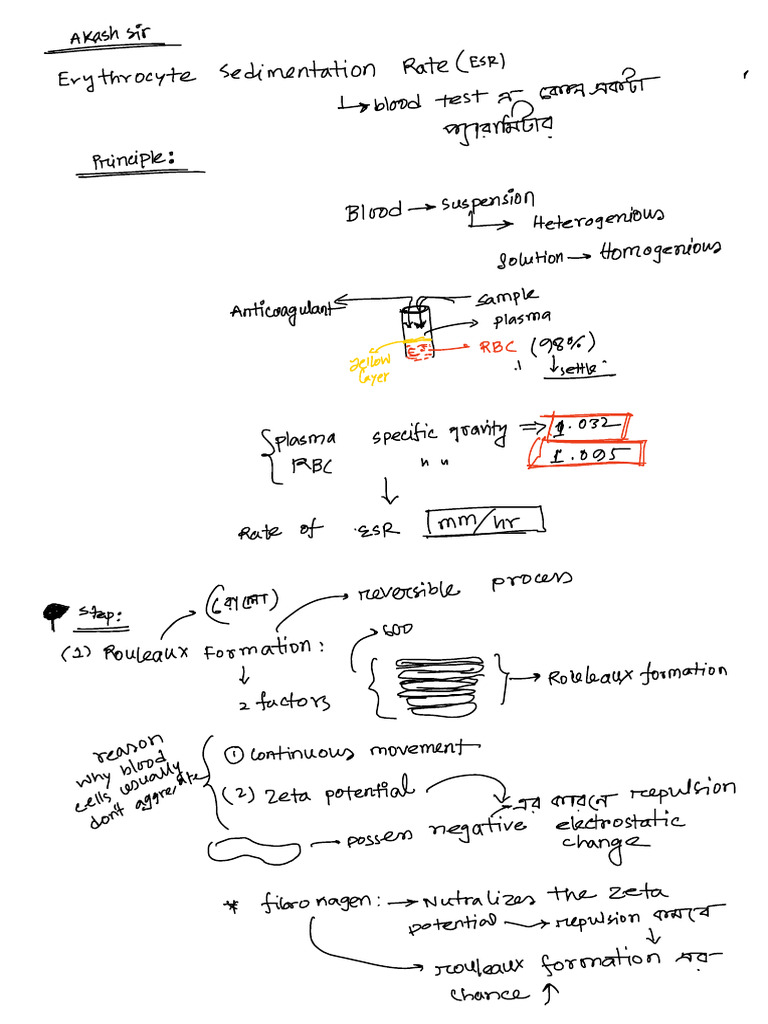 Akash sir
Erythrocyte Sedimentation Rate (ESR)
↳ blood test এ যেকোন একটা
প্যারামিটার
Principle:
Blood → suspension
↳ Heterogenious
solution → Homogenious
Anticoagulant
sample
plasma
RBC (98%)
↓ settle
yellow
layer
plasma specific gravity ⇒ 1.032
RBC " " 1.095
↓
Rate of ESR mm/hr
Step:
(রোলো)
reversible process
(1) Rouleaux Formation:
↓
2 factors
600
→ Rouleaux formation
reason
why blood
cells usually
don't aggregate
① continuous movement
(2) Zeta potential
→ এর কারনে repulsion
→ possess negative electrostatic
change
* fibronagen: → Nutralizes the Zeta
potential → repulsion কমবে
↓
rouleaux formation এর
chance ↑